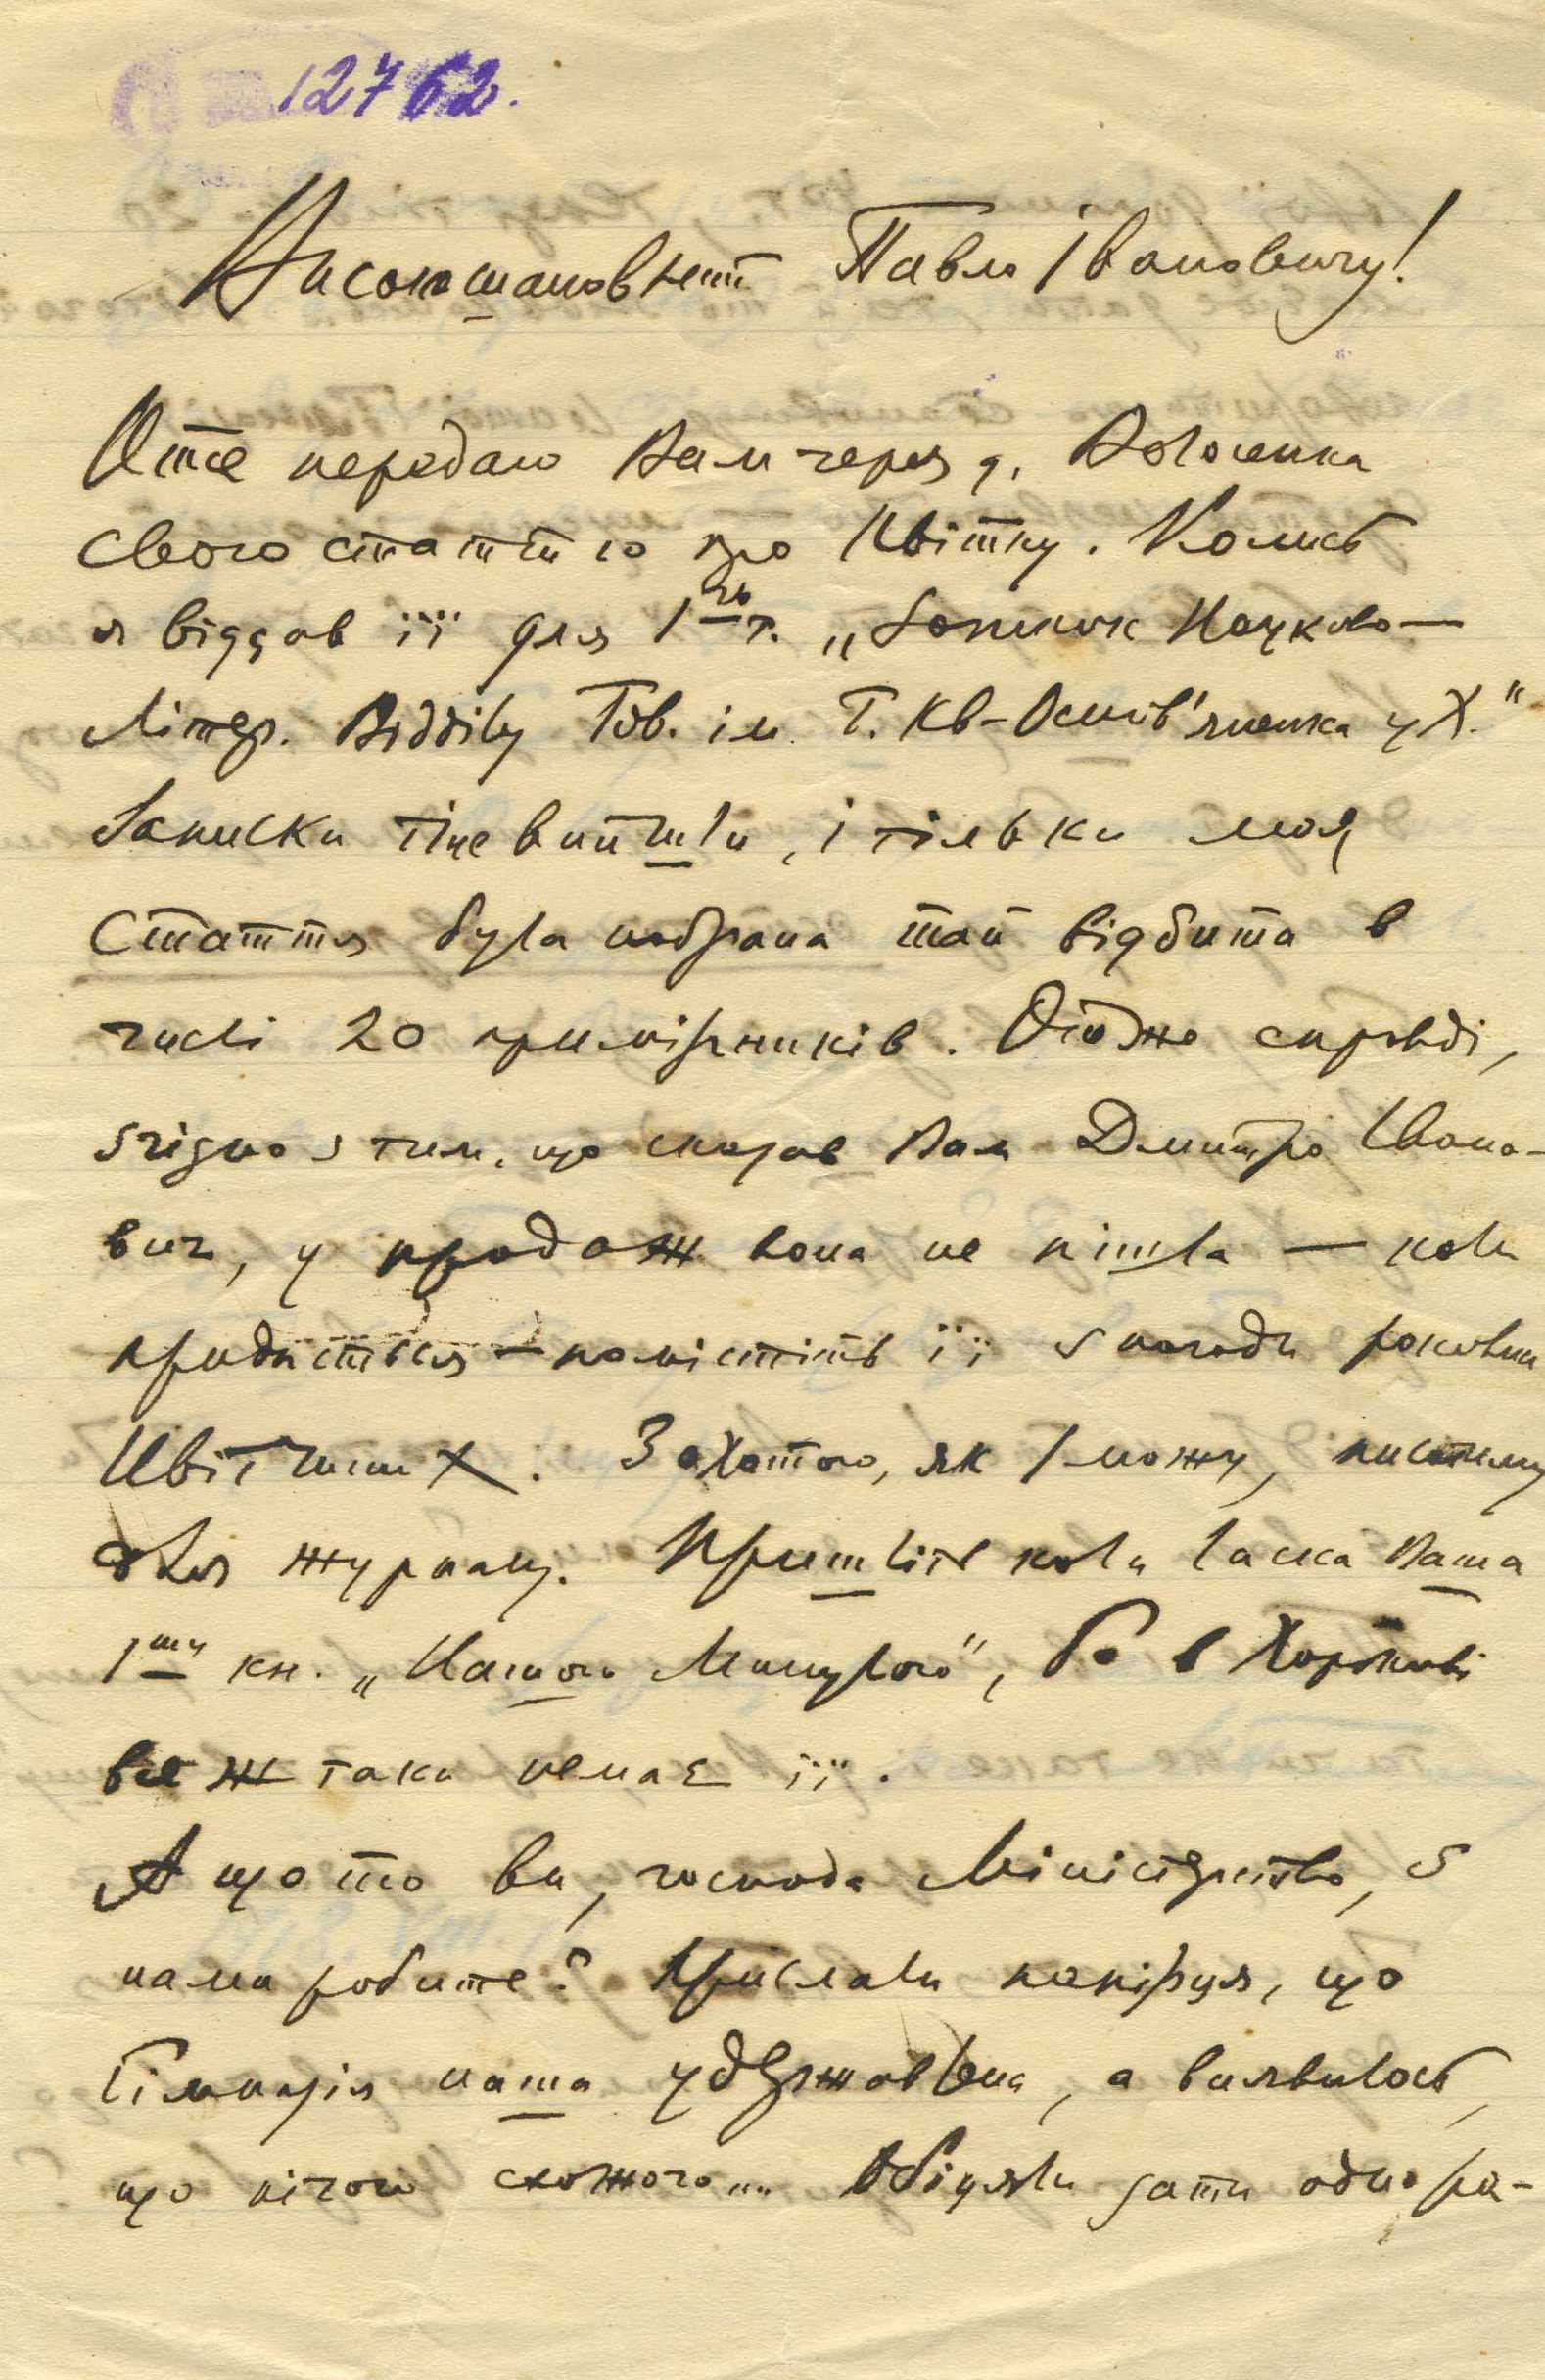 12762.
Високошановний Павло Івановичу!
Отже передаю Вам через д. Волошенка
свою статтю про Квітку. Колись
я віддав її для 1го т. „Записок Науково-
Літер. Відділу Тов. ім. Г. Кв-Основ'яненка у Х."
Записки не вийшли, і тільки моя
стаття була набрана тай відбита в
числі 20 примірників. Отож справді,
згідно з тим, що сказав Вам Дмитро Івано-
вич, у продаж вона не пішла — коли
придасться — помістіть її з нагоди роковин
Квітчиних. З охотою, як зможу, писатиму
для журналу. Пришліть коли ласка Ваша
1шу кн. „Нашого Минулого", бо в Харкові
все ж таки немає її.
А що то ви, господа Міністерство, з
нами робите? Прислали папірця, що
Гімназія наша удержавлена, а виявилось,
що нічого схожого... Обіцяли дати однора-